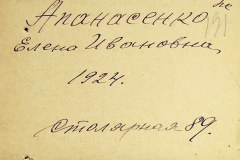 Апанасенко
Елена Ивановна
1924.
Столярная 89.